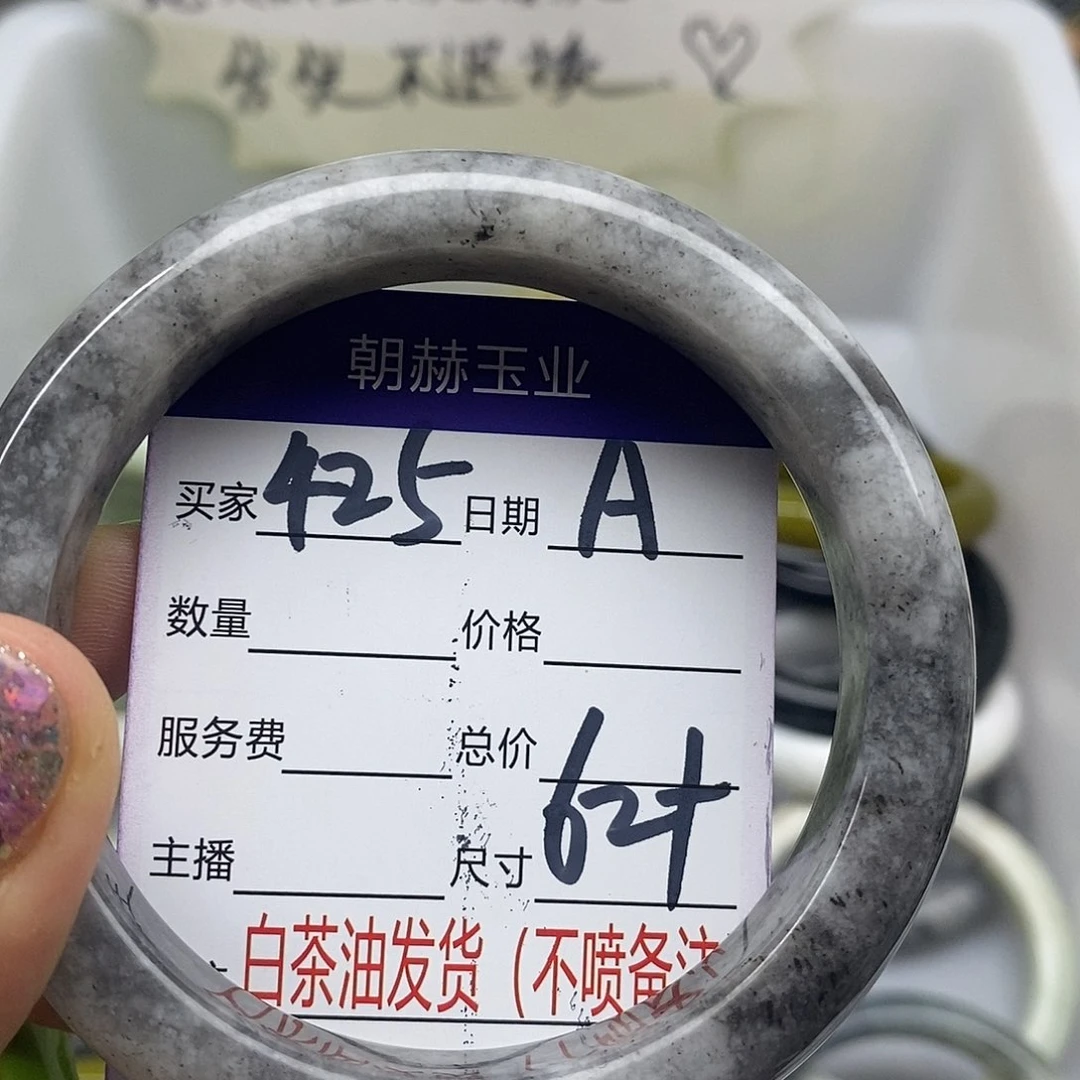 售货不退换
朝赫玉业
买家 425 日期 A
数量 价格
服务费 总价
主播 尺寸 62+
白茶油发货（不喷备注